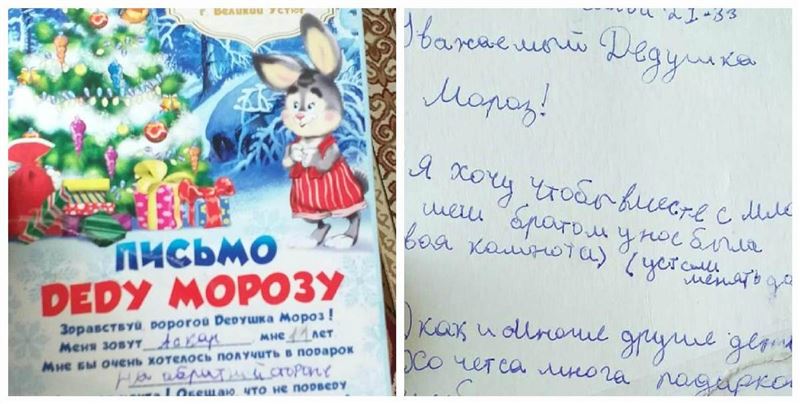 г Великий Устюг
ПИСЬМО
DEDУ МОРОЗУ
Здравствуй, Дорогой Dедушка Мороз!
Меня зовут Аскар мне 11 лет
Мне бы очень хотелось получить в подарок
на обратной стороне
Обещаю, что не подведу
21-33
Уважаемый Дедушка
Мороз!
Я хочу чтобы вместе с мла
шем братом у нос была
воя комнота) (устали
менять
) как и многие другие дети
хочетса многа